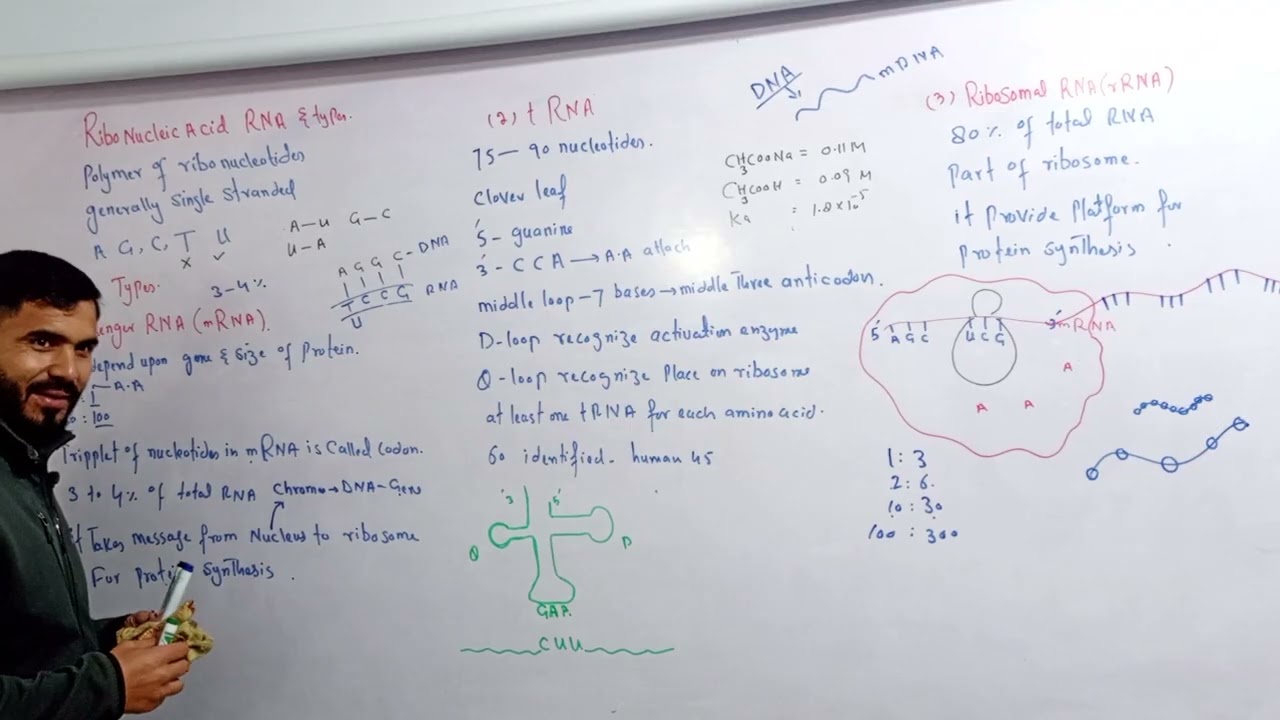 RiboNucleic Acid RNA & types.
Polymer of ribonucleotides
generally single stranded
A G, C, T U
x ✓
A-U G-C
U-A
Types.
3-4%
A G G C-DNA
T C C G RNA
U
enger RNA (mRNA).
depend upon gene & size of Protein.
1 A.A
: 100
Tripplet of nucleotides in mRNA is Called Codon.
3 to 4% of total RNA Chromo→DNA-Gene
it Takes message from Nucleus to ribosome
For protein synthesis.
(2) t RNA
75-90 nucleotides.
Clover leaf
5'- guanine
3'-CCA→A.A attach
middle loop-7 bases→middle Three anticodon.
D-loop recognize activation enzyme
Q-loop recognize Place on ribosome
at least one tRNA for each amino acid.
60 identified- human 45
'3 5'
Q D
GAA.
CUU
DNA mDNA
CH3COONa = 0.11M
CH3COOH = 0.09 M
Ka : 1.8×10-5
(3) Ribosomal RNA (rRNA)
80% of total RNA
Part of ribosome.
it Provide Platform for
Protein synthesis.
5' A G C U C G 3' mRNA
A
A A
1:3
2:6.
10:30
100:300